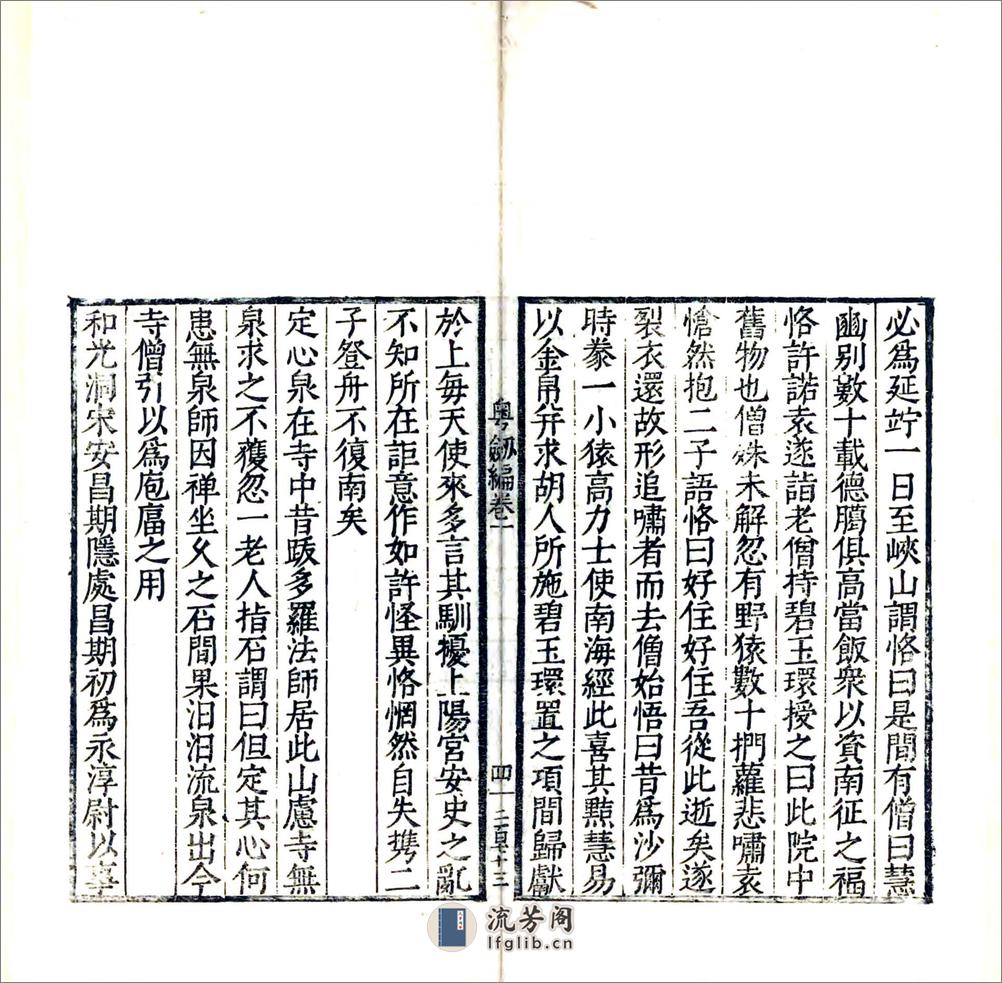 必爲延竚一日至峽山謂恪曰是間有僧曰慧
幽别數十載德臈俱高當飯衆以資南征之福
恪許諾袁遂詣老僧持碧玉環授之曰此院中
舊物也僧姝未解忽有野猿數十捫蘿悲嘯袁
愴然抱二子語恪曰好住好住吾從此逝矣遂
裂衣還故形追嘯者而去僧始悟曰昔爲沙彌
時豢一小猿高力士使南海經此喜其黠慧易
以金帛并求胡人所施碧玉環置之項間歸獻
粤劒編卷一
四
二百十三
於上每天使來多言其馴擾上陽宮安史之亂
不知所在詎意作如許怪異恪惘然自失携二
子登舟不復南矣
定心泉在寺中昔䟦多羅法師居此山慮寺無
泉求之不獲忽一老人指石謂曰但定其心何
患無泉師因禅坐久之石間果汩汩流泉出今
寺僧引以爲庖湢之用
和光洞宋安昌期隱處昌期初爲永淳尉以事
流芳阁
lfglib.cn